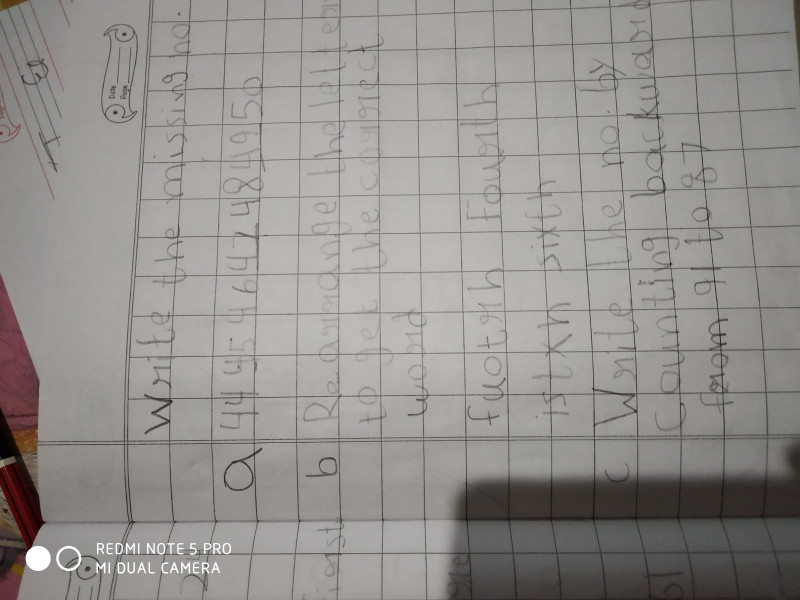 Date
Page
Write the missing no.
a 44 45 46 47 48 49 50
b Rearrange the letter
to get the correct
word
fuotrh Fourth
istxh sixth
c Write the no. by
Counting backward
from 91 to 87
REDMI NOTE 5 PRO
MI DUAL CAMERA